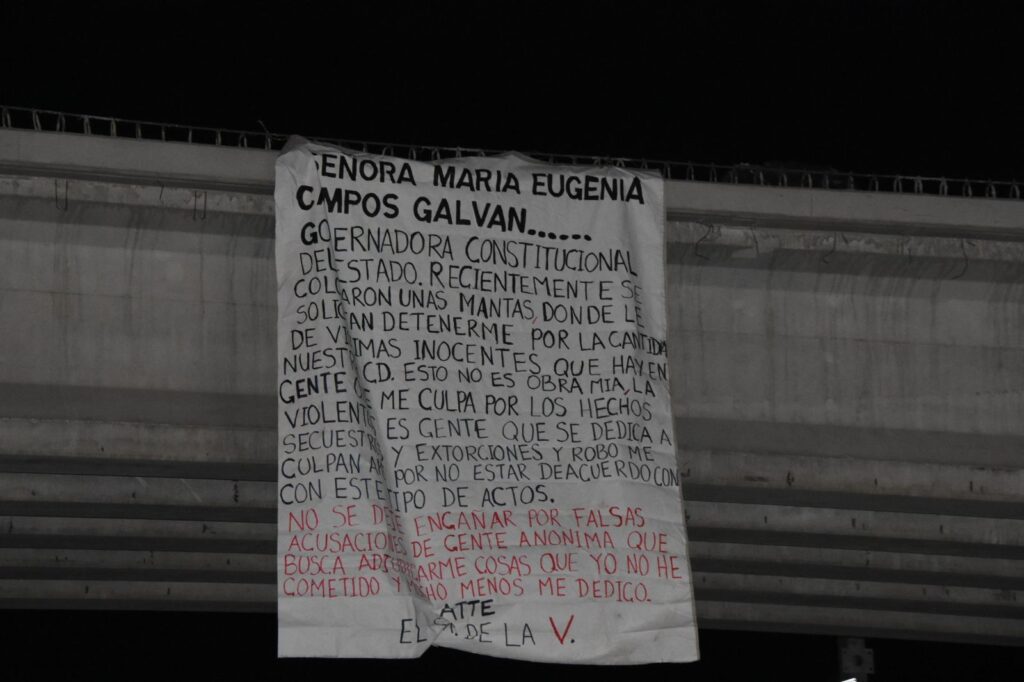 SEÑORA MARIA EUGENIA
CAMPOS GALVAN......
GOBERNADORA CONSTITUCIONAL
DEL ESTADO. RECIENTEMENTE SE
COLOCARON UNAS MANTAS, DONDE LE
SOLICITAN DETENERME POR LA CANTIDA
DE VICTIMAS INOCENTES QUE HAY EN
NUESTRA CD. ESTO NO ES OBRA MIA, LA
GENTE QUE ME CULPA POR LOS HECHOS
VIOLENTOS ES GENTE QUE SE DEDICA A
SECUESTRO Y EXTORCIONES Y ROBO ME
CULPAN A POR NO ESTAR DEACUERDO CON
CON ESTE TIPO DE ACTOS.
NO SE DEJE ENGAÑAR POR FALSAS
ACUSACIONES DE GENTE ANONIMA QUE
BUSCA COSAS QUE YO NO HE
COMETIDO Y MUCHO MENOS ME DEDICO.
ATTE
EL SR. DE LA V.